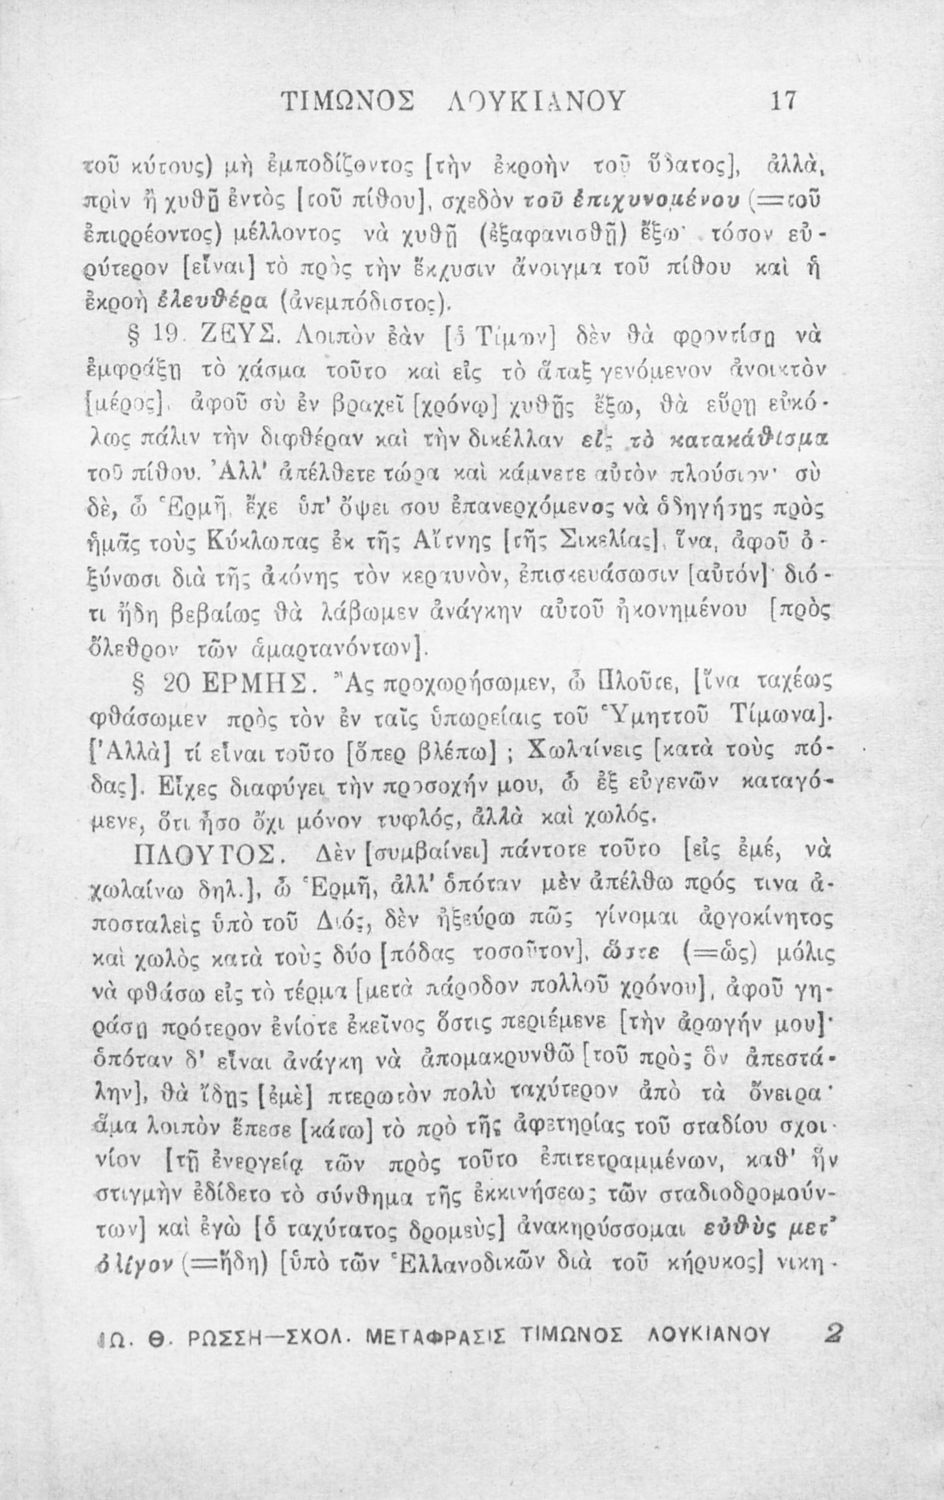 ΤΙΜΩΝΟΣ ΛΟΥΚΙΑΝΟΥ 17
τοῦ κύτους) μὴ ἐμποδίζοντος [τὴν ἐκροὴν τοῦ ὕδατος], ἀλλὰ,
πρὶν ἢ χυθῇ ἐντὸς [τοῦ πίθου], σχεδὸν τοῦ ἐπιχυνομένου (=τοῦ
ἐπιρρέοντος) μέλλοντος νὰ χυθῇ (ἐξαφανισθῇ) ἔξω· τόσον εὐ-
ρύτερον [εἶναι] τὸ πρὸς τὴν ἔκχυσιν ἄνοιγμα τοῦ πίθου καὶ ἡ
ἐκροὴ ἐλευθέρα (ἀνεμπόδιστος).
§ 19. ΖΕΥΣ. Λοιπὸν ἐὰν [ὁ Τίμων] δὲν θὰ φροντίσῃ νὰ
ἐμφράξῃ τὸ χάσμα τοῦτο καὶ εἰς τὸ ἅπαξ γενόμενον ἀνοικτὸν
[μέρος], ἀφοῦ σὺ ἐν βραχεῖ [χρόνῳ] χυθῇς ἔξω, θὰ εὕρῃ εὐκό-
λως πάλιν τὴν διφθέραν καὶ τὴν δικέλλαν εἰς τὸ κατακάθισμα
τοῦ πίθου. Ἀλλ' ἀπέλθετε τώρα καὶ κάμνετε αὐτὸν πλούσιον· σὺ
δὲ, ὦ Ἑρμῆ, ἔχε ὑπ' ὄψει σου ἐπανερχόμενος νὰ ὁδηγήσῃς πρὸς
ἡμᾶς τοὺς Κύκλωπας ἐκ τῆς Αἴτνης [τῆς Σικελίας], ἵνα, ἀφοῦ ὀ-
ξύνωσι διὰ τῆς ἀκόνης τὸν κεραυνὸν, ἐπισκευάσωσιν [αὐτόν]· διό-
τι ἤδη βεβαίως θὰ λάβωμεν ἀνάγκην αὐτοῦ ἠκονημένου [πρὸς
ὄλεθρον τῶν ἁμαρτανόντων].
§ 20 ΕΡΜΗΣ. Ἂς προχωρήσωμεν, ὦ Πλοῦτε, [ἵνα ταχέως
φθάσωμεν πρὸς τὸν ἐν ταῖς ὑπωρείαις τοῦ Ὑμηττοῦ Τίμωνα].
[Ἀλλὰ] τί εἶναι τοῦτο [ὅπερ βλέπω] ; Χωλαίνεις [κατὰ τοὺς πό-
δας]. Εἶχες διαφύγει τὴν προσοχήν μου, ὦ ἐξ εὐγενῶν καταγό-
μενε, ὅτι ἦσο ὄχι μόνον τυφλός, ἀλλὰ καὶ χωλός.
ΠΛΟΥΤΟΣ. Δὲν [συμβαίνει] πάντοτε τοῦτο [εἰς ἐμέ, νὰ
χωλαίνω δηλ.], ὦ Ἑρμῆ, ἀλλ' ὁπόταν μὲν ἀπέλθω πρός τινα ἀ-
ποσταλεὶς ὑπὸ τοῦ Διός, δὲν ἠξεύρω πῶς γίνομαι ἀργοκίνητος
καὶ χωλὸς κατὰ τοὺς δύο [πόδας τοσοῦτον], ὥστε (=ὡς) μόλις
νὰ φθάσω εἰς τὸ τέρμα [μετὰ πάροδον πολλοῦ χρόνου], ἀφοῦ γη-
ράσῃ πρότερον ἐνίοτε ἐκεῖνος ὅστις περιέμενε [τὴν ἀρωγήν μου]·
ὁπόταν δ' εἶναι ἀνάγκη νὰ ἀπομακρυνθῶ [τοῦ πρὸς ὃν ἀπεστά-
λην], θὰ ἴδῃς [ἐμὲ] πτερωτὸν πολὺ ταχύτερον ἀπὸ τὰ ὄνειρα·
ἅμα λοιπὸν ἔπεσε [κάτω] τὸ πρὸ τῆς ἀφετηρίας τοῦ σταδίου σχοι-
νίον [τῇ ἐνεργείᾳ τῶν πρὸς τοῦτο ἐπιτετραμμένων, καθ' ἣν
στιγμὴν ἐδίδετο τὸ σύνθημα τῆς ἐκκινήσεως τῶν σταδιοδρομούν-
των] καὶ ἐγὼ [ὁ ταχύτατος δρομεὺς] ἀνακηρύσσομαι εὐθὺς μετ'
ὀλίγον (=ἤδη) [ὑπὸ τῶν Ἑλλανοδικῶν διὰ τοῦ κήρυκος] νικη-
ΙΩ. Θ. ΡΩΣΣΗ—ΣΧΟΛ. ΜΕΤΑΦΡΑΣΙΣ ΤΙΜΩΝΟΣ ΛΟΥΚΙΑΝΟΥ 2